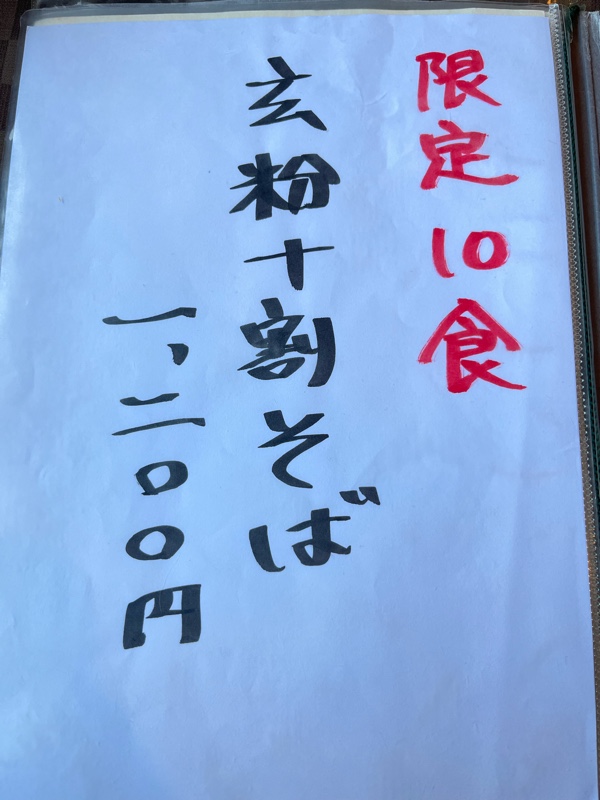 限定10食
玄粉十割そば
一、二〇〇円